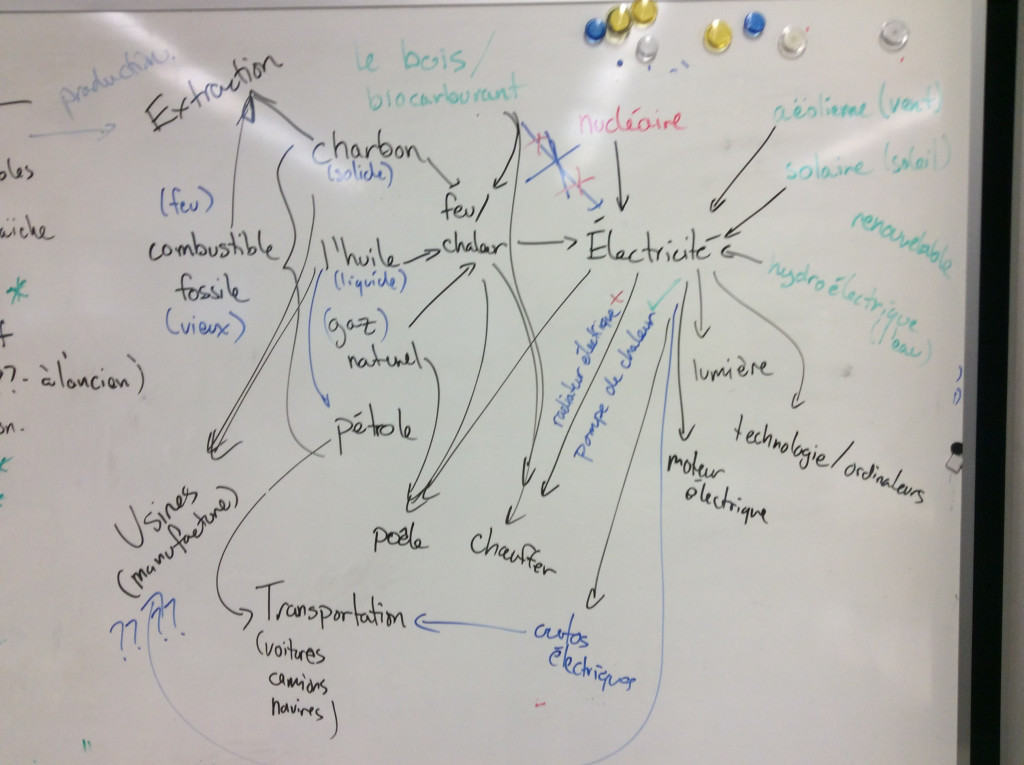 production.
Extraction
le bois/
biocarburant
nucléaire
aéolienne (vent)
solaire (soleil)
renouvelable
hydroélectrique
(l'eau)
charbon
(solide)
feu/
chaleur
Électricité
(feu)
combustible
fossile
(vieux)
l'huile
(liquide)
(gaz)
naturel
pétrole
*
??- à l'ancien)
on.
radiateur électrique x
pompe de chaleur
lumière
technologie/ordinateurs
moteur
électrique
Usines
(manufacture)
?? ??
poêle
chauffer
Transportation
(voitures
camions
navires)
autos
électriques